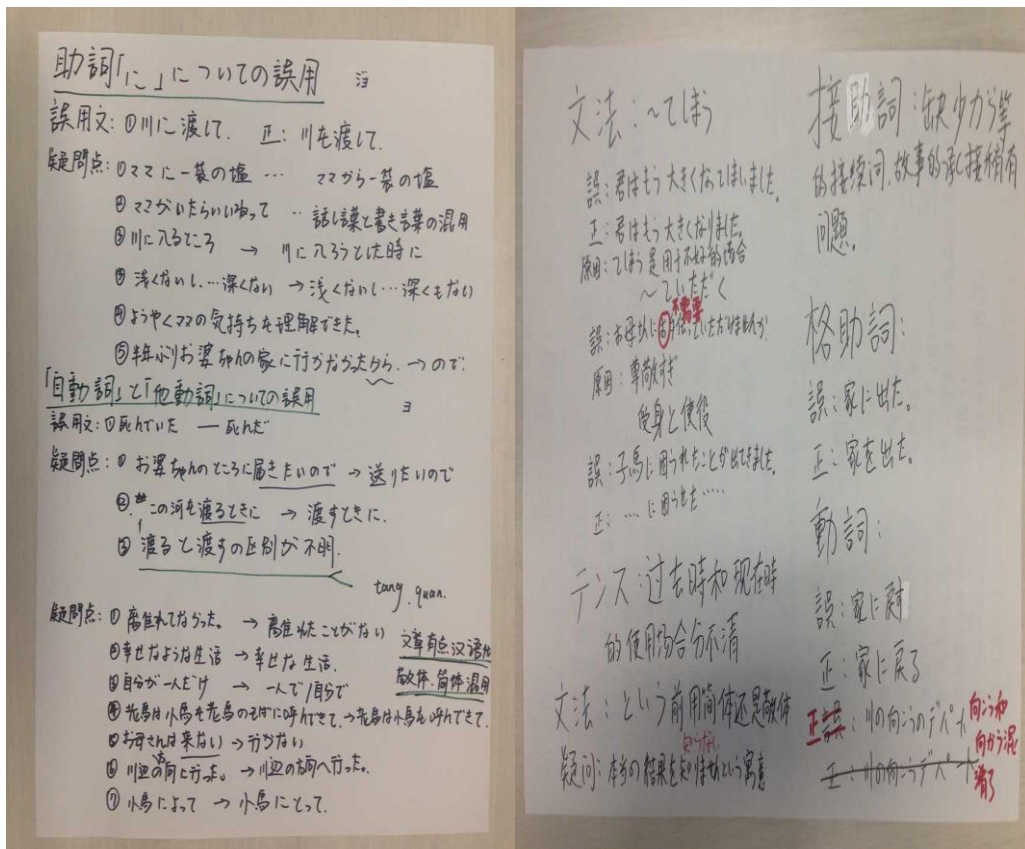 助詞「に」についての誤用
誤用文：①川に渡して. 正：川を渡して.
疑問点：①ママに一袋の塩… ママから一袋の塩
②ママがいたらいいねって ‥話し言葉と書き言葉の混用
③川に入るところ → 川に入ろうとした時に
浅くないし、…深くない → 浅くないし…深くもない
④ようやくママの気持ちを理解できた。
⑤半年ぶりお婆ちゃんの家に行かなかったから. → ので.
「自動詞」と「他動詞」についての誤用
誤用文：①死んでいた — 死んだ
疑問点：① お婆ちゃんのところに届きたいので → 送りたいので
②. この河を渡るときに → 渡すときに.
③ 渡ると渡すの区別が不明.
tang. quan.
疑問点：① 離れてなかった。 → 離れたことがない
②幸せなような生活 → 幸せな生活.
③自分が一人だけ → 一人で/自分で
④老馬は小馬を老馬のそばに呼んできて. → 老馬は小馬を呼んできて.
⑤お母さんは来ない → 行かない
⑥川辺の方向に行った。 → 川辺の方向へ行った。
⑦小馬によって → 小馬にとって.
文章有点汉语化
敬体.简体混用
文法：～てしまう
誤：君はもう大きくなってしまいました。
正：君はもう大きくなりました。
原因：てしまう是用于不好的场合
～ていただく
不需要
誤：お母さんにお手伝っていただけませんか
原因：尊敬すぎ
受身と使役
誤：子馬に困られたことが出てきました。
正：…に困らせた……
テンス：过去時和现在時
的使用场合分不清
文法：という前用简体还是敬体
知らない
疑问：本当の結果を知りませんという寓意
接助詞：缺少から等
的接续词,故事的承接稍有
问题.
格助詞：
誤：家に出た。
正：家を出た。
動詞：
誤：家に戻す
正：家に戻る
正誤：川の向こうのデパート
正：川の向こうデパート
向こう和
向かう混
淆了